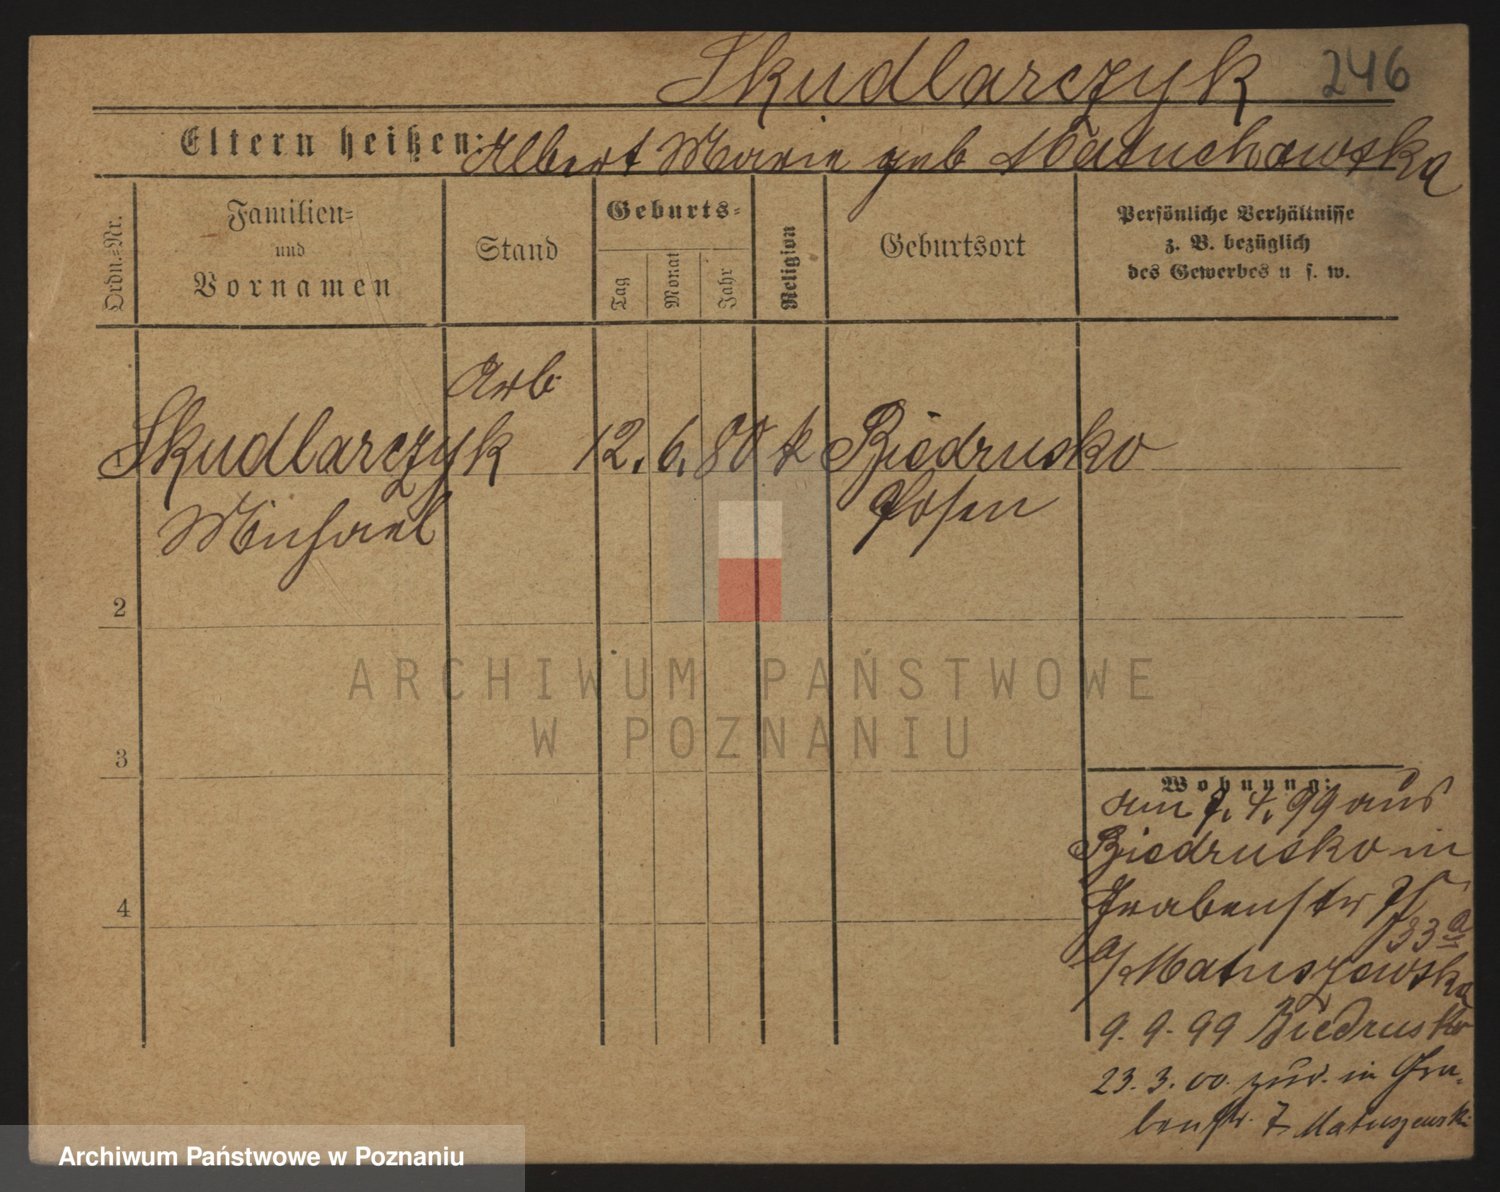 Skudlarczyk 246
Eltern heißen: Albert Marie geb Matuchowska
Ordn.=Nr.
Familien=
und
Vornamen
Stand
Geburts=
Tag
Monat
Jahr
Religion
Geburtsort
Persönliche Verhältnisse
z. B. bezüglich
des Gewerbes u. s. w.
Arb
1 Skudlarczyk 12. 6. 80 k Biedrusko
Michael Posen
2
3
4
Wohnung:
am 7. 4. 99 aus
Biedrusko in
Grabenstr
33 a
b/ Matuszewska
9. 9. 99 Biedrusko
23. 3. 00. zur. in Gra-
benstr. 7 Matuszewski
ARCHIWUM PAŃSTWOWE
W POZNANIU
Archiwum Państwowe w Poznaniu